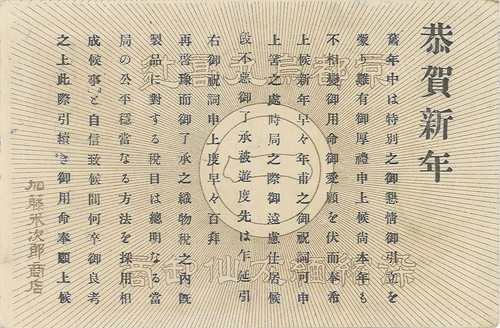 恭賀新年
舊年中は特別之御懇情御引立を
蒙り難有御厚禮申上候尚本年も
不相變御用命御愛顧を伏而奉希
上候新年早々年甫之御祝詞可申
上筈之處時局之際御遠慮仕居候
段不惡御了承被遊度先は乍延引
右御祝詞申上度早々百拜
再啓豫而御了承之織物稅之內旣
製品に對する稅目は總明なる當
局の公平穩當なる方法を採用相
成候事と自信致候間何卒御良考
之上此際引續き御用命奉願上候
加藤米次郎商店
京都烏丸
一